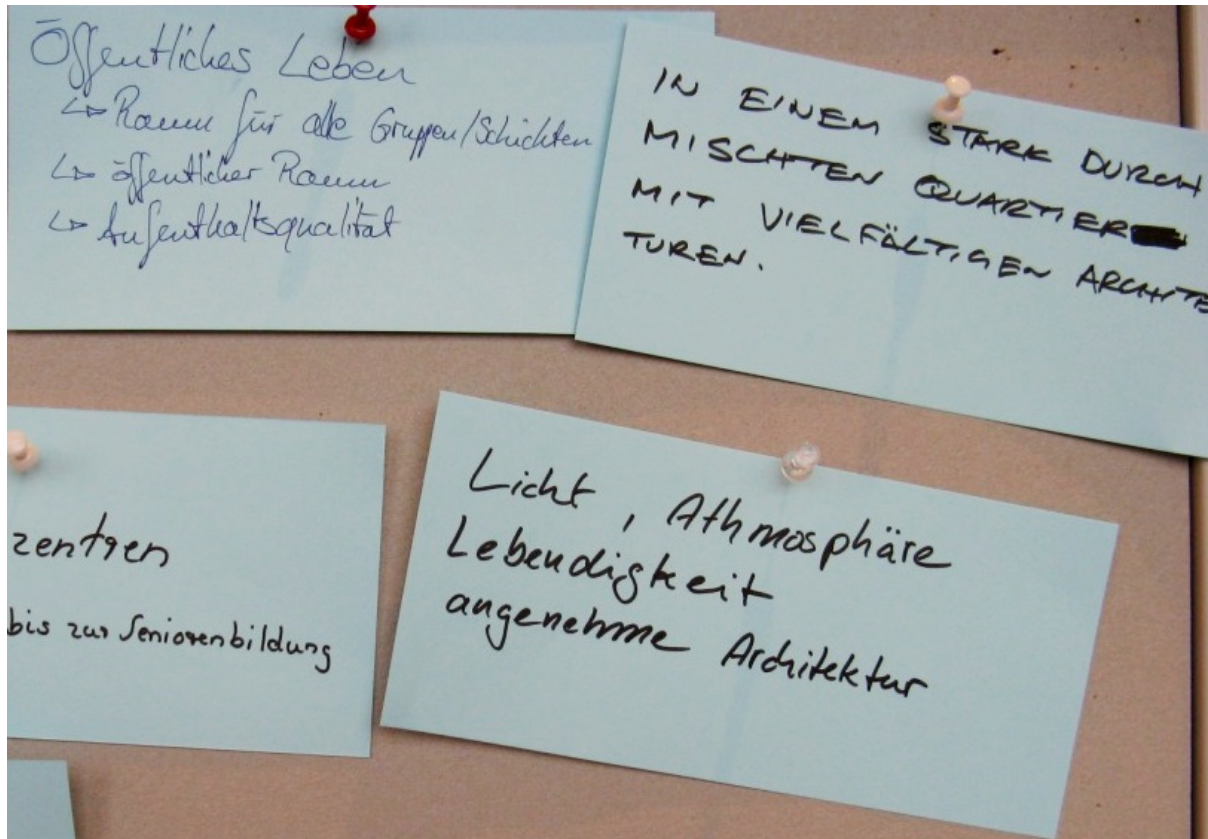 Öffentliches Leben
↳ Raum für alle Gruppen/Schichten
↳ öffentlicher Raum
↳ Aufenthaltsqualität
IN EINEM STARK DURCH
MISCHTEN QUARTIER
MIT VIELFÄLTIGEN ARCHITE
TUREN.
zentren
bis zur Seniorenbildung
Licht, Athmosphäre
Lebendigkeit
angenehme Architektur